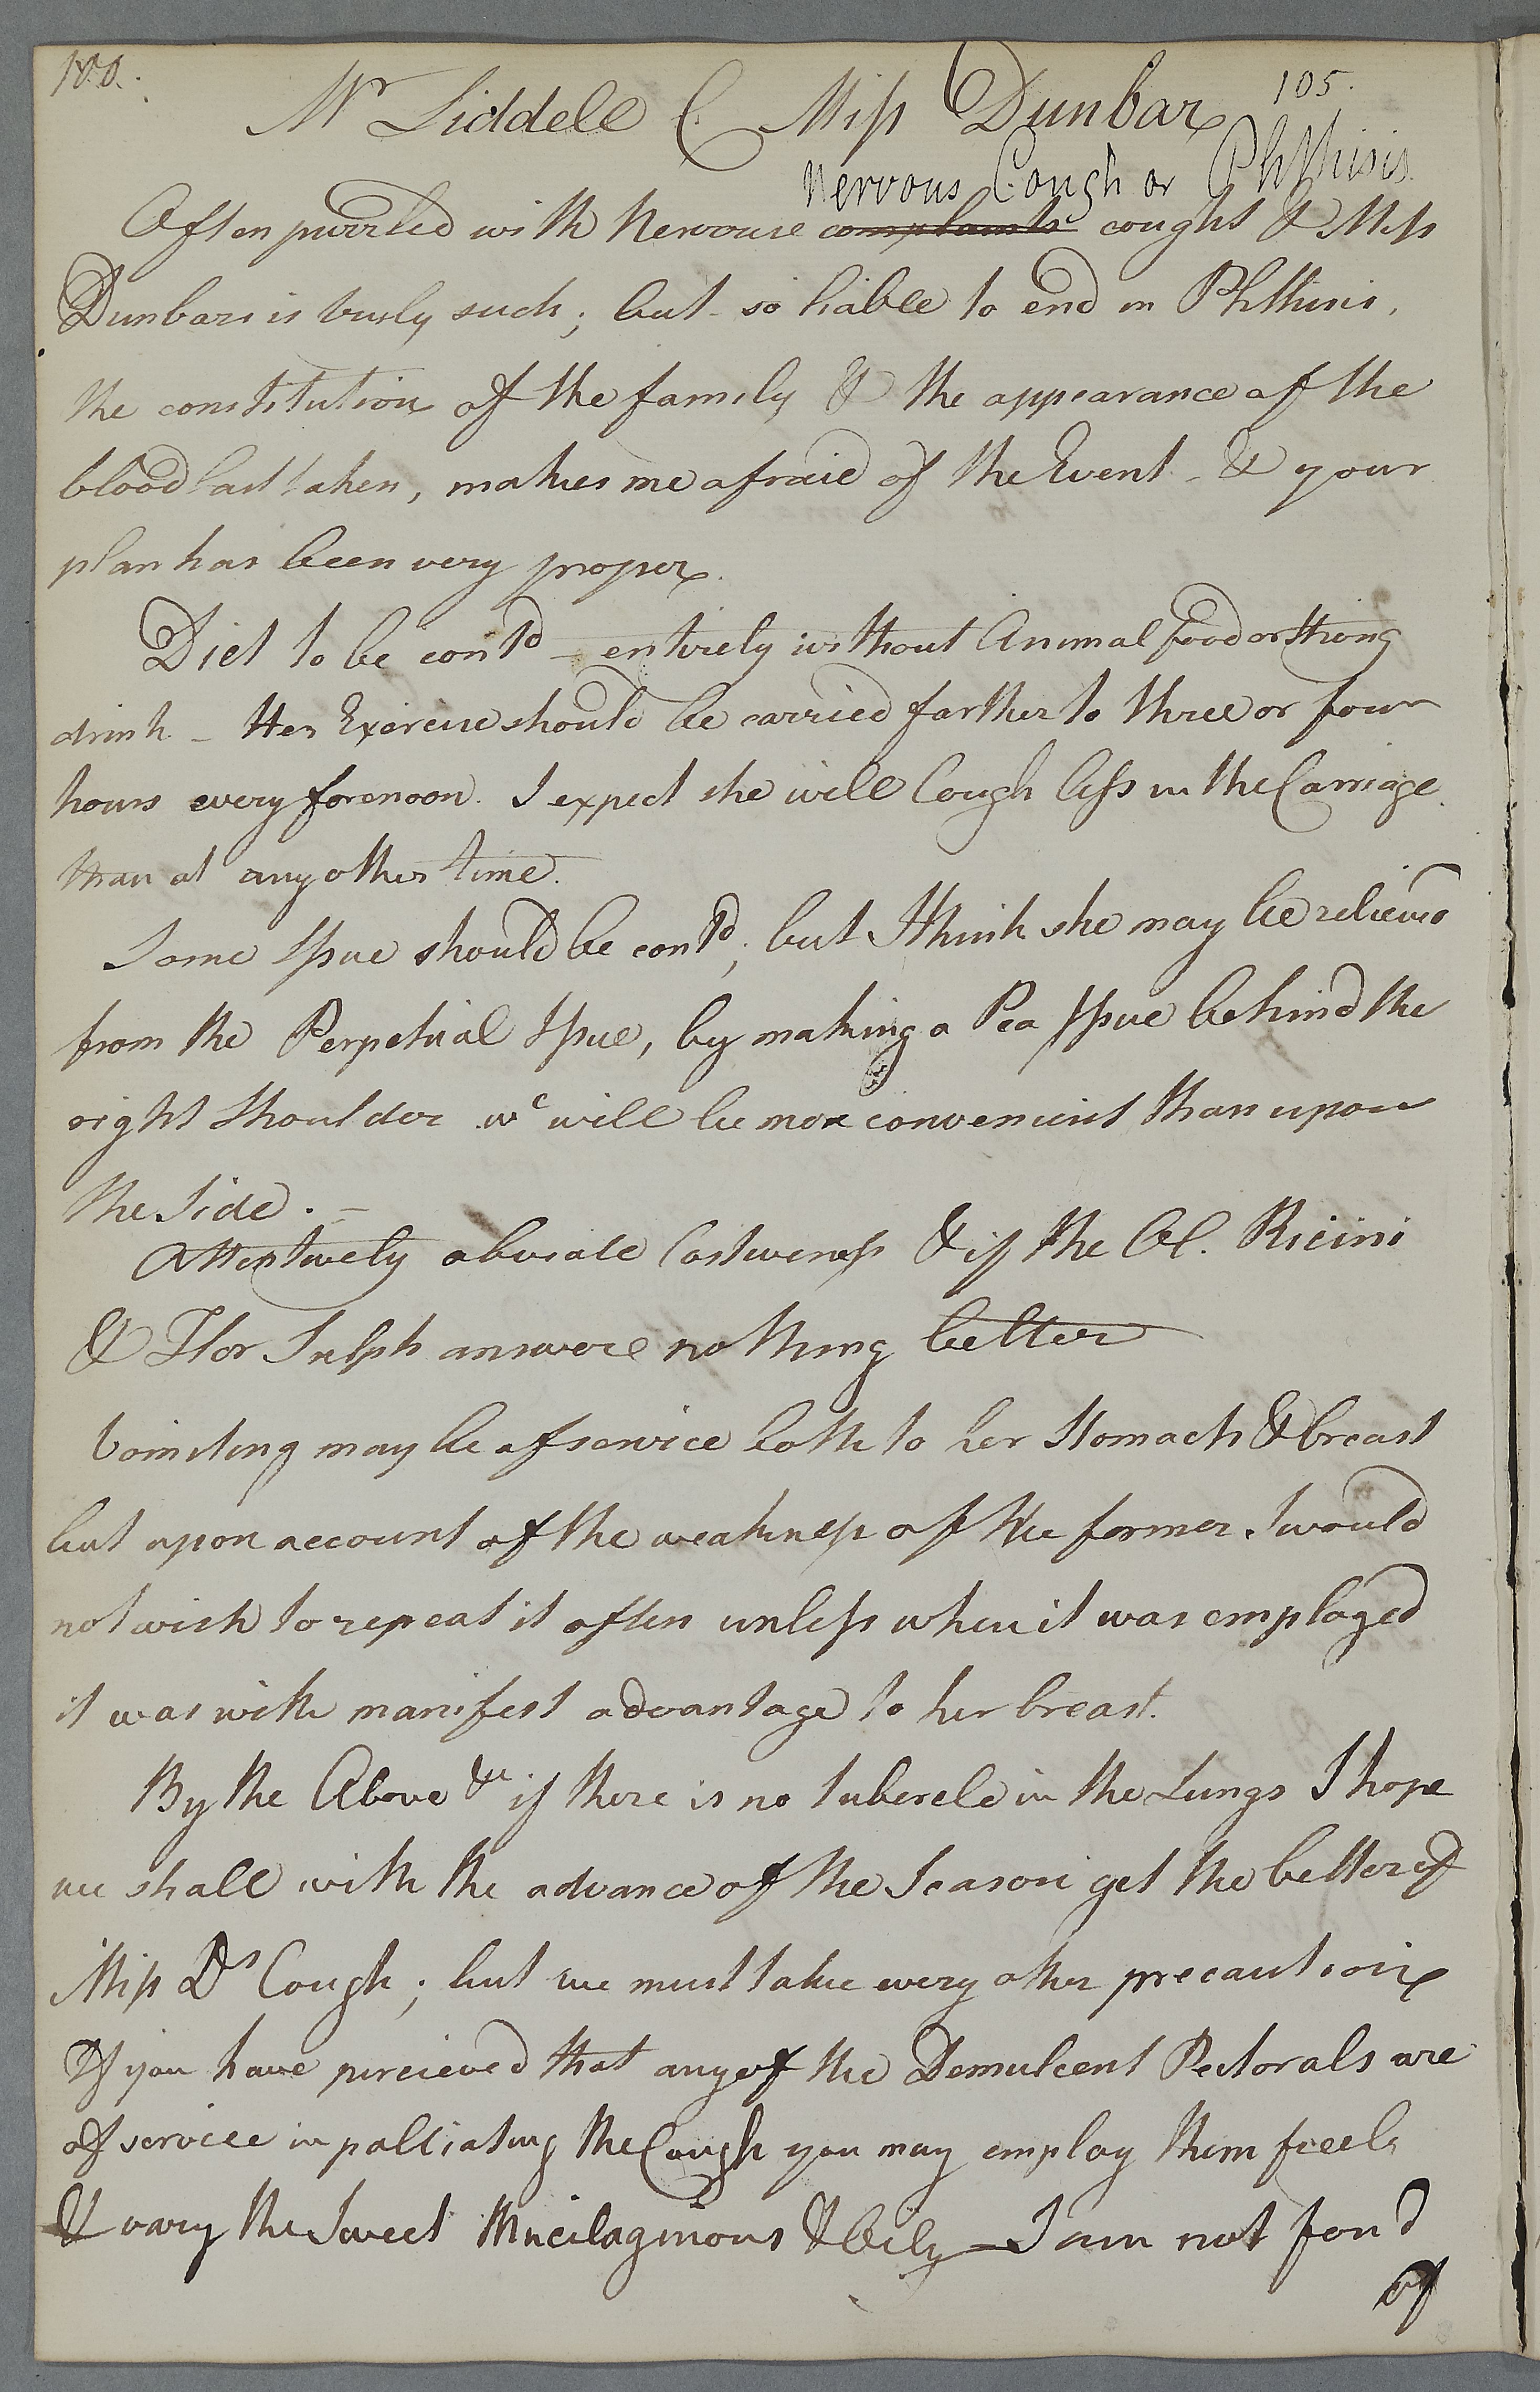 100.
Mr Liddell C. Miss Dunbar 105.
Nervous Cough or Phthisis.
Often puzzled with Nervouse complaints coughs & Miss
Dunbars is truly such; but so liable to end in Phthisis,
the constitution of the family & the appearance of the
blood last taken, makes me afraid of the Event - & your
plan has been very proper.
Diet to be contd - entirely without Animal food or strong
drink - Her Exercise should be carried farther to three or four
hours every forenoon. I expect she will Cough less in the Carriage
than at any other time.
Some Issue should be contd; but I think she may be relieved
from the Perpetual Issue, by making a Pea Issue behind the
right shoulder wc will be more convenient than upon
the Side. -
Attentively obviate Costiveness & if the Ol. Ricini
& Flor Sulph answere nothing better
Vomiting may be of service both to her Stomach & breast
but upon account of the weakness of the former I would
not wish to repeat it often unless when it was employed
it was with manifest advantage to her breast.
By the Above &c if there is no tubercle in the Lungs I hope
we shall with the advance of the Season get the better of
Miss Ds Cough; but we must take every other precaution
If you have percieved that any of the Demulcent Pectorals are
of service in palliating the Cough you may employ them freely
& vary the Sweet Mucilaginous & Oily - I am not fond
of